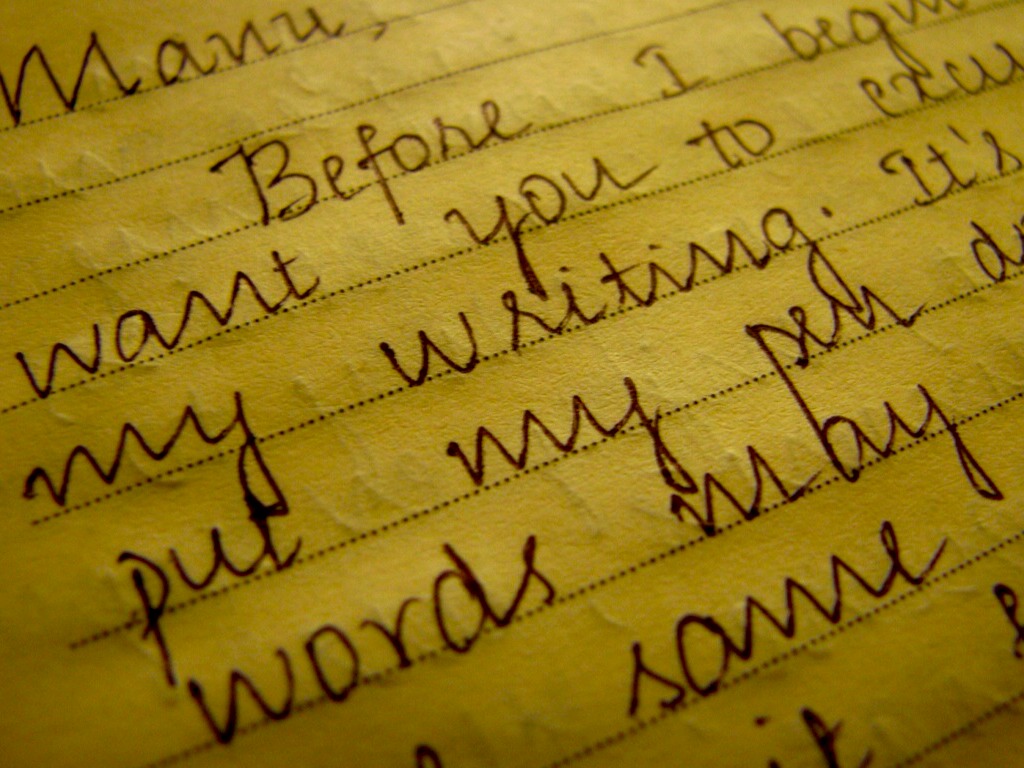 Manu,
Before I begin
want you to excu
my writing. It's
put my pen do
words may
same
it